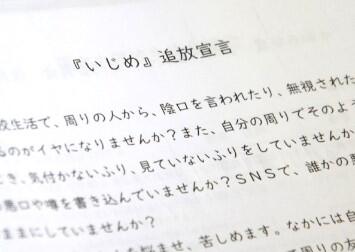 『いじめ』追放宣言
校生活で、周りの人から、陰口を言われたり、無視された
るのがイヤになりませんか？また、自分の周りでそのよう
とき、気付かないふり、見ていないふりをしていませんか
の悪口や噂を書き込んでいませんか？ＳＮＳで、誰かの悪
ままにしていませんか？
を悩ませ、苦しめます。なかには自
周りの友